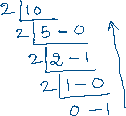 2 | 10
2 | 5 - 0
2 | 2 - 1
2 | 1 - 0
0 - 1